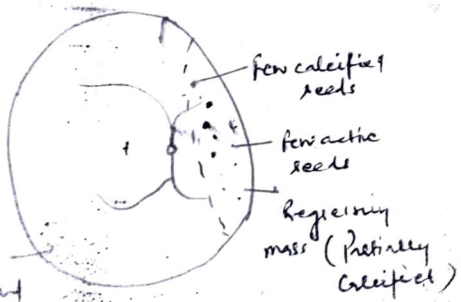 few calcified
seeds
few active
seeds
Regressing
mass (Partially
Calcified)